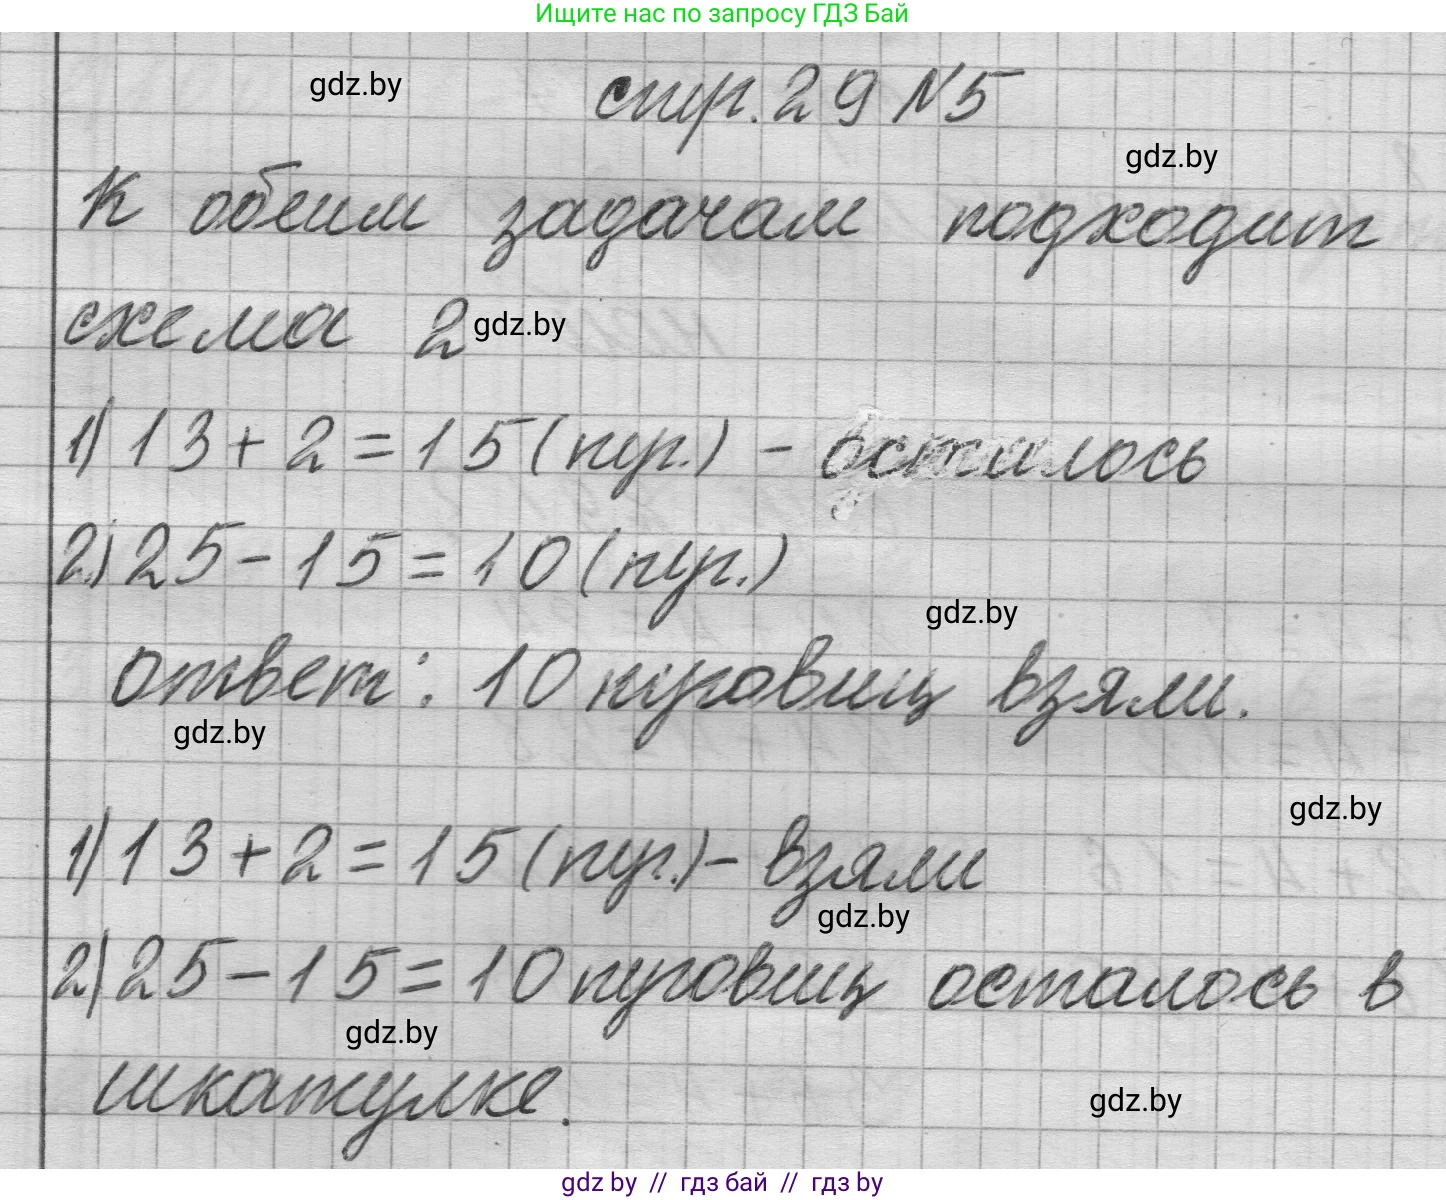 Ищите нас по запросу ГДЗ Бай
gdz.by
стр. 29 №5
gdz.by
К обеим задачам подходит
схема 2
gdz.by
1) 13 + 2 = 15 (пуг.) - осталось
2) 25 - 15 = 10 (пуг.)
gdz.by
ответ: 10 пуговиц взяли.
gdz.by
gdz.by
1) 13 + 2 = 15 (пуг.) - взяли
gdz.by
2) 25 - 15 = 10 пуговиц осталось в
gdz.by
шкатулке.
gdz.by
gdz by // гдз бай // гдз by